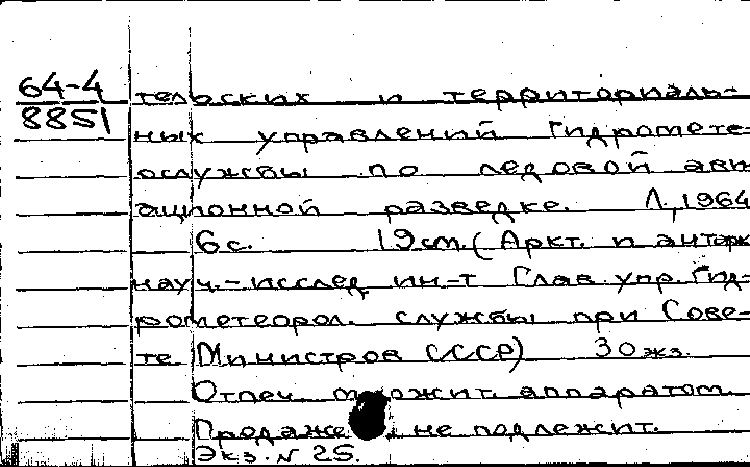 64-4
8851
тельских и территориаль-
ных управлений Гидромете-
ослужбы по ледовой ави
ационной разведке. Л., 1964
6 с. 19 см. (Аркт. и антарк
науч.-исслед. ин-т Глав. упр. Гид-
рометеорол. службы при Сове-
те Министров СССР) 30 экз.
Отпеч. аппаратом.
Продаже не подлежит.
Экз. № 25.